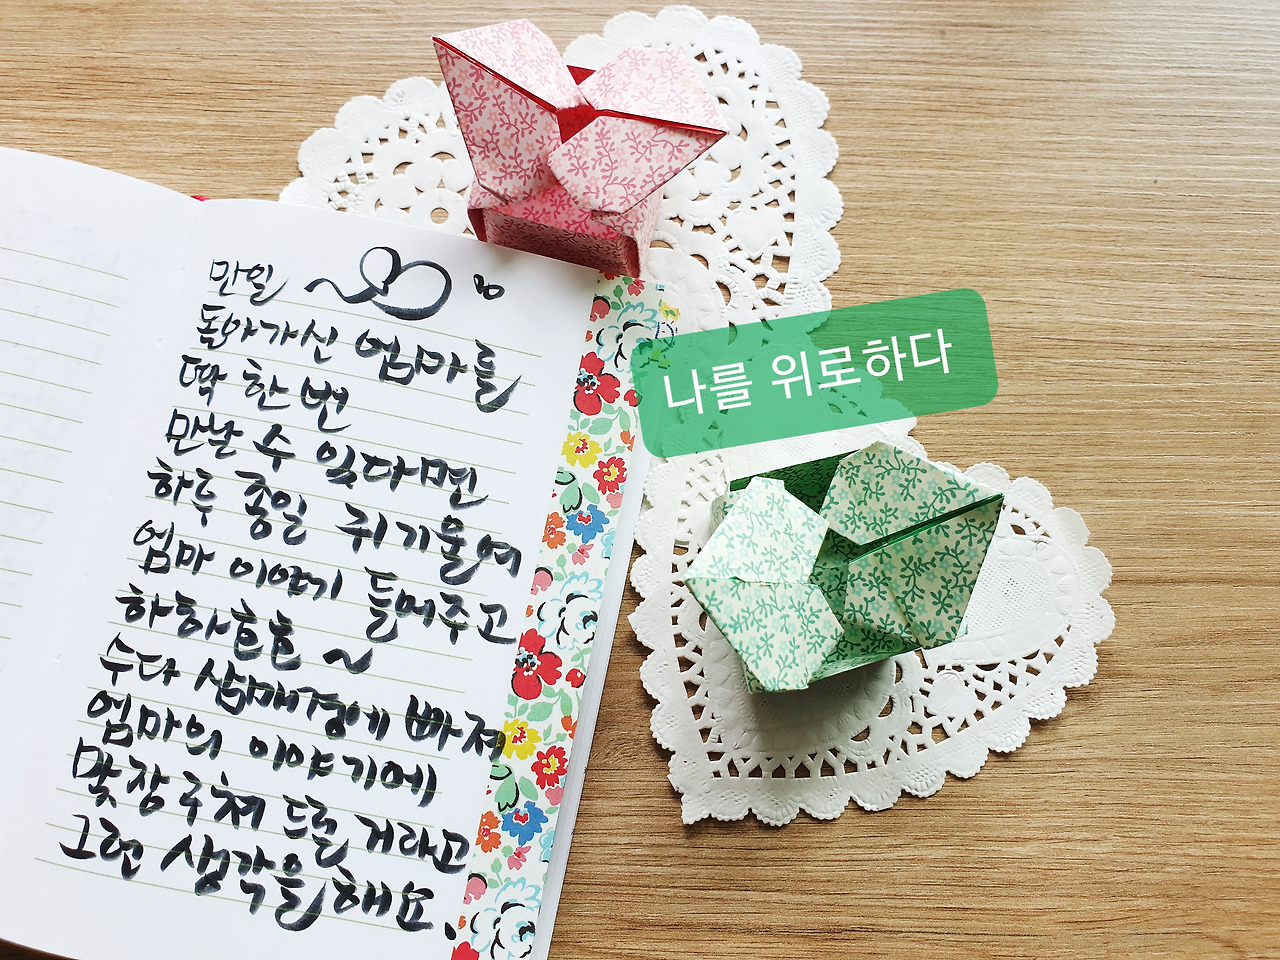 만일
돌아가신 엄마를
딱 한 번
만날 수 있다면
하루 종일 귀 기울여
엄마 이야기 들어주고
하하호호 ~
수다 삼매경에 빠져
엄마의 이야기에
맞장구쳐 드릴 거라고
그런 생각을 해요.
나를 위로하다